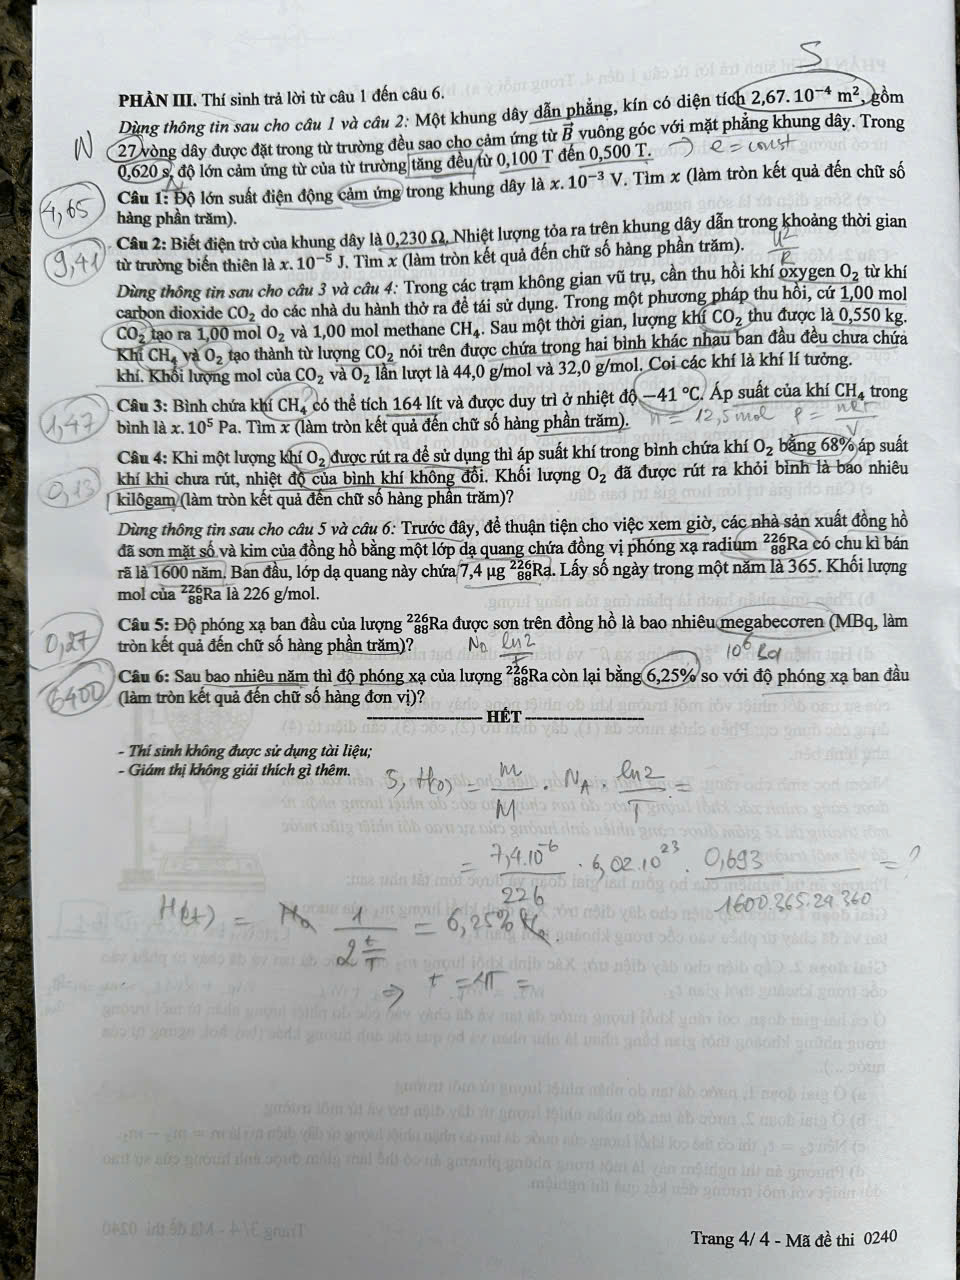 S
PHẦN III. Thí sinh trả lời từ câu 1 đến câu 6.
Dùng thông tin sau cho câu 1 và câu 2: Một khung dây dẫn phẳng, kín có diện tích 2,67. 10⁻⁴ m², gồm
N
27 vòng dây được đặt trong từ trường đều sao cho cảm ứng từ B⃗ vuông góc với mặt phẳng khung dây. Trong
0,620 s, độ lớn cảm ứng từ của từ trường tăng đều từ 0,100 T đến 0,500 T. → e = const
Câu 1: Độ lớn suất điện động cảm ứng trong khung dây là x. 10⁻³ V. Tìm x (làm tròn kết quả đến chữ số
4,65
hàng phần trăm).
Câu 2: Biết điện trở của khung dây là 0,230 Ω. Nhiệt lượng tỏa ra trên khung dây dẫn trong khoảng thời gian
9,41
từ trường biến thiên là x. 10⁻⁵ J. Tìm x (làm tròn kết quả đến chữ số hàng phần trăm).
Dùng thông tin sau cho câu 3 và câu 4: Trong các trạm không gian vũ trụ, cần thu hồi khí oxygen O₂ từ khí
carbon dioxide CO₂ do các nhà du hành thở ra để tái sử dụng. Trong một phương pháp thu hồi, cứ 1,00 mol
CO₂ tạo ra 1,00 mol O₂ và 1,00 mol methane CH₄. Sau một thời gian, lượng khí CO₂ thu được là 0,550 kg.
Khí CH₄ và O₂ tạo thành từ lượng CO₂ nói trên được chứa trong hai bình khác nhau ban đầu đều chưa chứa
khí. Khối lượng mol của CO₂ và O₂ lần lượt là 44,0 g/mol và 32,0 g/mol. Coi các khí là khí lí tưởng.
Câu 3: Bình chứa khí CH₄ có thể tích 164 lít và được duy trì ở nhiệt độ −41 °C. Áp suất của khí CH₄ trong
1,47
bình là x. 10⁵ Pa. Tìm x (làm tròn kết quả đến chữ số hàng phần trăm). n = 12,5 mol
Câu 4: Khi một lượng khí O₂ được rút ra để sử dụng thì áp suất khí trong bình chứa khí O₂ bằng 68% áp suất
0,13
khí khi chưa rút, nhiệt độ của bình khí không đổi. Khối lượng O₂ đã được rút ra khỏi bình là bao nhiêu
kilôgam (làm tròn kết quả đến chữ số hàng phần trăm)?
Dùng thông tin sau cho câu 5 và câu 6: Trước đây, để thuận tiện cho việc xem giờ, các nhà sản xuất đồng hồ
đã sơn mặt số và kim của đồng hồ bằng một lớp dạ quang chứa đồng vị phóng xạ radium ²²⁶₈₈Ra có chu kì bán
rã là 1600 năm. Ban đầu, lớp dạ quang này chứa 7,4 μg ²²⁶₈₈Ra. Lấy số ngày trong một năm là 365. Khối lượng
mol của ²²⁶₈₈Ra là 226 g/mol.
Câu 5: Độ phóng xạ ban đầu của lượng ²²⁶₈₈Ra được sơn trên đồng hồ là bao nhiêu megabecơren (MBq, làm
0,27
tròn kết quả đến chữ số hàng phần trăm)? N₀ ln2/T 10⁶ Bq
Câu 6: Sau bao nhiêu năm thì độ phóng xạ của lượng ²²⁶₈₈Ra còn lại bằng 6,25% so với độ phóng xạ ban đầu
6400
(làm tròn kết quả đến chữ số hàng đơn vị)?
HẾT
- Thí sinh không được sử dụng tài liệu;
- Giám thị không giải thích gì thêm.
5, H(0) = m/M . N_A . ln2/T =
= 7,4.10⁻⁶/226 . 6,02.10²³ . 0,693/1600.365.24.360 = ?
H(t) = H₀ 1/2^(t/T) = 6,25% H₀
⇒ t = 4T =
Trang 4/ 4 - Mã đề thi 0240